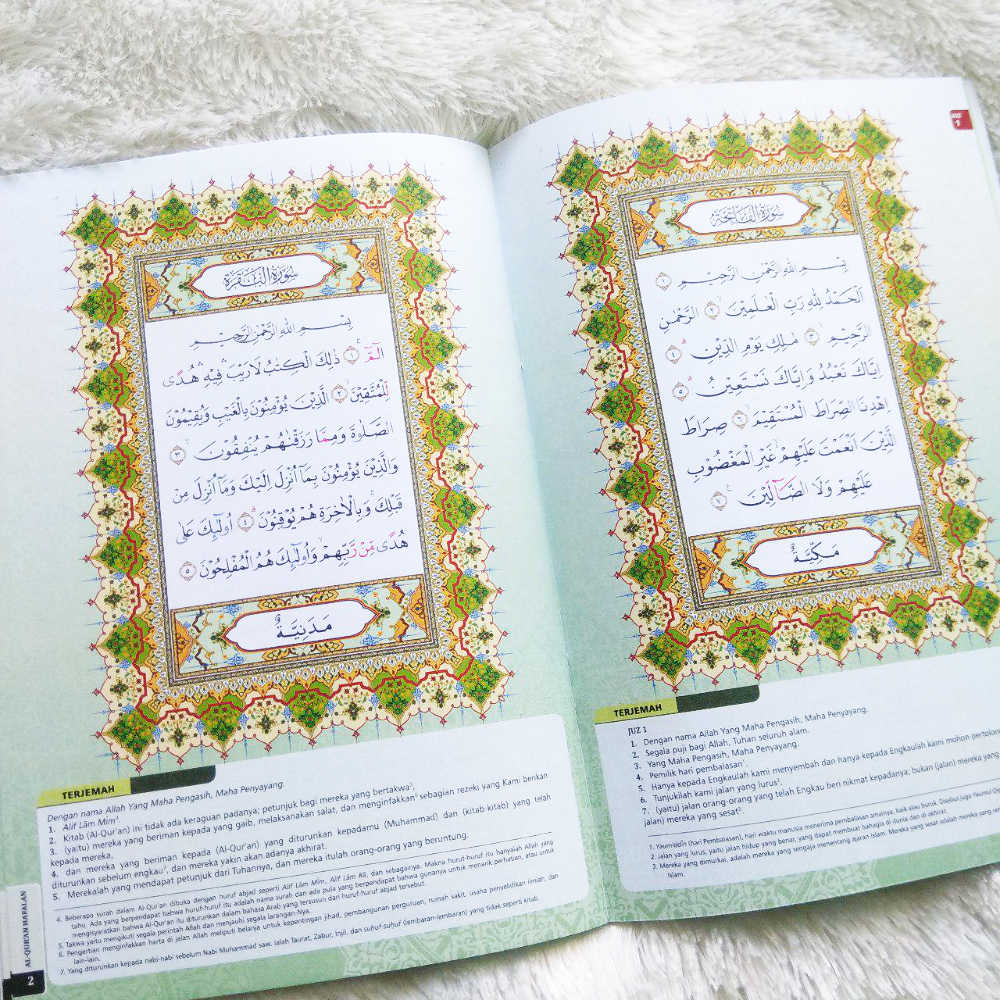 JUZ
1
سُوْرَةُ الْفَاتِحَةِ
بِسْمِ اللهِ الرَّحْمٰنِ الرَّحِيْمِ ١
اَلْحَمْدُ لِلّٰهِ رَبِّ الْعٰلَمِيْنَ ٢ الرَّحْمٰنِ
الرَّحِيْمِ ٣ مٰلِكِ يَوْمِ الدِّيْنِ ٤
اِيَّاكَ نَعْبُدُ وَاِيَّاكَ نَسْتَعِيْنُ ٥
اِهْدِنَا الصِّرَاطَ الْمُسْتَقِيْمَ ٦ صِرَاطَ
الَّذِيْنَ اَنْعَمْتَ عَلَيْهِمْ غَيْرِ الْمَغْضُوْبِ
عَلَيْهِمْ وَلَا الضَّآلِّيْنَ ٧
مَكِّيَّةٌ
TERJEMAH
JUZ 1
1. Dengan nama Allah Yang Maha Pengasih, Maha Penyayang.
2. Segala puji bagi Allah, Tuhan seluruh alam.
3. Yang Maha Pengasih, Maha Penyayang.
4. Pemilik hari pembalasan¹.
5. Hanya kepada Engkaulah kami menyembah dan hanya kepada Engkaulah kami mohon
6. Tunjukilah kami jalan yang lurus²,
7. (yaitu) jalan orang-orang yang telah Engkau beri nikmat kepadanya; bukan (jalan) mereka
jalan) mereka yang sesat³.
1. Yaumiddin (hari Pembalasan), hari waktu manusia menerima pembalasan amalnya, baik atau buruk. Disebut juga
2. Jalan yang lurus, yaitu jalan hidup yang benar, yang dapat membuat bahagia di dunia dan di akhirat.
3. Mereka yang dimurkai, adalah mereka yang sengaja menentang ajaran Islam. Mereka yang sesat adalah mereka yang
Islam.
سُوْرَةُ الْبَقَرَةِ
بِسْمِ اللهِ الرَّحْمٰنِ الرَّحِيْمِ
الۤمّۤ ١ ذٰلِكَ الْكِتٰبُ لَا رَيْبَ فِيْهِ هُدًى
لِّلْمُتَّقِيْنَ ٢ الَّذِيْنَ يُؤْمِنُوْنَ بِالْغَيْبِ وَيُقِيْمُوْنَ
الصَّلٰوةَ وَمِمَّا رَزَقْنٰهُمْ يُنْفِقُوْنَ ٣
وَالَّذِيْنَ يُؤْمِنُوْنَ بِمَآ اُنْزِلَ اِلَيْكَ وَمَآ اُنْزِلَ مِنْ
قَبْلِكَ وَبِالْاٰخِرَةِ هُمْ يُوْقِنُوْنَ ٤ اُولٰۤىِٕكَ عَلٰى
هُدًى مِّنْ رَّبِّهِمْ وَاُولٰۤىِٕكَ هُمُ الْمُفْلِحُوْنَ ٥
مَدَنِيَّةٌ
TERJEMAH
Dengan nama Allah Yang Maha Pengasih, Maha Penyayang.
1. Alif Lām Mim⁴.
2. Kitab (Al-Qur'an) ini tidak ada keraguan padanya; petunjuk bagi mereka yang bertakwa⁵,
3. (yaitu) mereka yang beriman kepada yang gaib, melaksanakan salat, dan menginfakkan⁶ sebagian rezeki yang Kami berikan
kepada mereka,
4. dan mereka yang beriman kepada (Al-Qur'an) yang diturunkan kepadamu (Muhammad) dan (kitab kitab) yang telah
diturunkan sebelum engkau⁷, dan mereka yakin akan adanya akhirat.
5. Merekalah yang mendapat petunjuk dari Tuhannya, dan mereka itulah orang-orang yang beruntung.
4. Beberapa surah dalam Al-Qur'an dibuka dengan huruf abjad seperti Alif Lām Mim, Alif Lām Rā, dan sebagainya. Makna huruf-huruf itu hanyalah Allah yang
tahu. Ada yang berpendapat bahwa huruf-huruf itu adalah nama surah dan ada pula yang berpendapat bahwa gunanya untuk menarik perhatian, atau untuk
mengisyaratkan bahwa Al-Qur'an itu diturunkan dalam bahasa Arab yang tersusun dari huruf-huruf abjad tersebut.
5. Takwa yaitu mengikuti segala perintah Allah dan menjauhi segala larangan-Nya.
6. Pengertian menginfakkan harta di jalan Allah meliputi belanja untuk kepentingan jihad, pembangunan perguruan, rumah sakit, usaha penyelidikan ilmiah, dan
lain-lain.
7. Yang diturunkan kepada nabi-nabi sebelum Nabi Muhammad saw. ialah Taurat, Zabur, Injil, dan suhuf-suhuf (lembaran-lembaran) yang tidak seperti kitab.
AL-QUR'AN HAFALAN
2